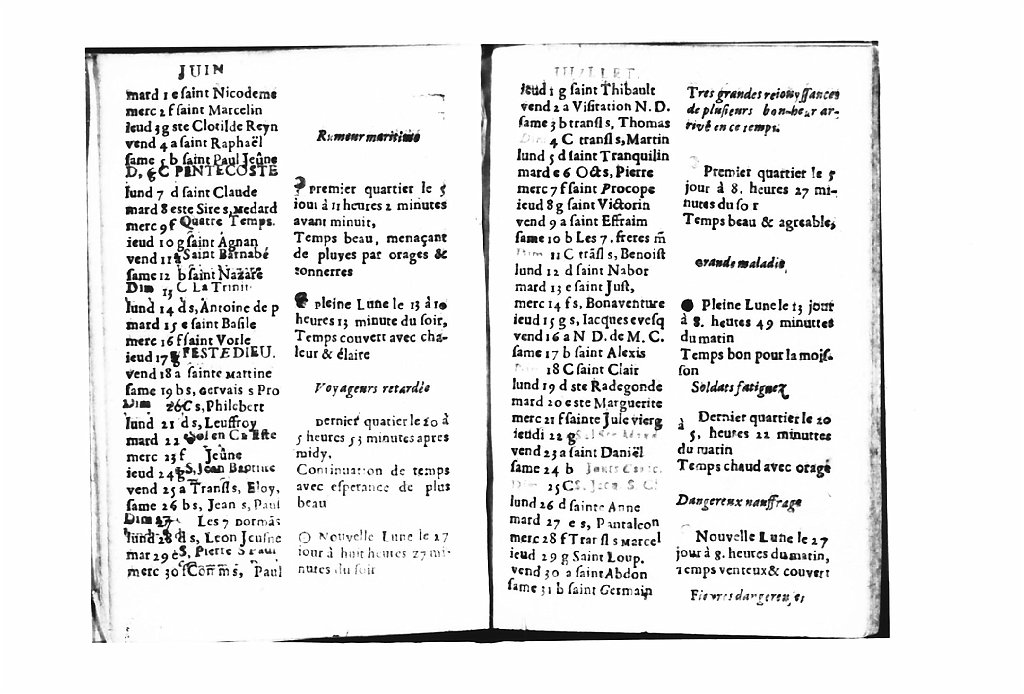 JUIN
mard 1 e saint Nicodeme
merc 2 f saint Marcelin
ieud 3 g ste Clotilde Reyn
vend 4 a saint Raphaël
same 5 b saint Paul Jeûne
D, 6 C PENTECOSTE
lund 7 d saint Claude
mard 8 e ste Sire s, Medard
merc 9 f Quatre Temps.
ieud 10 g saint Agnan
vend 11 Saint Barnabé
same 12 b saint Nazare
Dim 13 C La Trinit
lund 14 d s, Antoine de p
mard 15 e saint Basile
merc 16 f saint Vorle
ieud 17 FESTE DIEU.
vend 18 a sainte Martine
same 19 b s, Gervais s Pro
Dim 20 C s, Philebert
lund 21 d s, Leuffroy
mard 22 Sol en Ca Este
merc 23 f Jeûne
ieud 24 g S, Jean Baptiste
vend 25 a Transl s, Eloy,
same 26 b s, Jean s, Paul
Dim 27 Les 7 dormās
lund 28 d s, Leon Jeusne
mar 29 e S, Pierre S Paul
merc 30 f Comm s, Paul
Rumeur maritime
Premier quartier le 5
ioui à 11 heures 2 minutes
avant minuit,
Temps beau, menaçant
de pluyes par orages &
tonnerres
Pleine Lune le 13 à 10
heures 13 minute du soir,
Temps couvert avec cha-
leur & élaire
Voyageurs retardée
Dernier quatier le 20 à
5 heures 53 minutes apres
midy,
Continuation de temps
avec esperance de plus
beau
Nouvelle Lune le 27
iour à huit heures 27 mi-
nutes du soir
JUILLET.
ieud 1 g saint Thibault
vend 2 a Visitation N. D.
same 3 b transl s, Thomas
Dim 4 C transl s, Martin
lund 5 d saint Tranquilin
mard e 6 Oct s, Pierre
merc 7 f saint Procope
ieud 8 g saint Victorin
vend 9 a saint Effraim
same 10 b Les 7. freres m̄
Dim 11 C trāsl s, Benoist
lund 12 d saint Nabor
mard 13 e saint Just,
merc 14 f s, Bonaventure
ieud 15 g s, Iacques evesq
vend 16 a N D. de M. C.
same 17 b saint Alexis
18 C saint Clair
lund 19 d ste Radegonde
mard 20 e ste Marguerite
merc 21 f sainte Jule vierg
ieudi 22 g
vend 23 a saint Daniël
same 24 b
25 C S.
lund 26 d sainte Anne
mard 27 e s, Pantaleon
merc 28 f Transl s Marcel
ieud 29 g Saint Loup.
vend 30 a saint Abdon
same 31 b saint Germain
Tres grandes reiouyssances
de plusieurs bon-heur ar-
rivé en ce temps.
Premier quartier le 5
jour à 8. heures 27 mi-
nutes du so r
Temps beau & agreable,
Grande maladie,
Pleine Lune le 13 jour
à 8. heutes 49 minuttes
du matin
Temps bon pour la mois-
son
Soldats fatiguez
Dernier quarttier le 20
à 5, heures 22 minuttes
du matin
Temps chaud avec orage
Dangereux nauffrage
Nouvelle Lune le 27
jour à 8. heures du matin,
Temps venteux & couvert
Fievres dangereuses